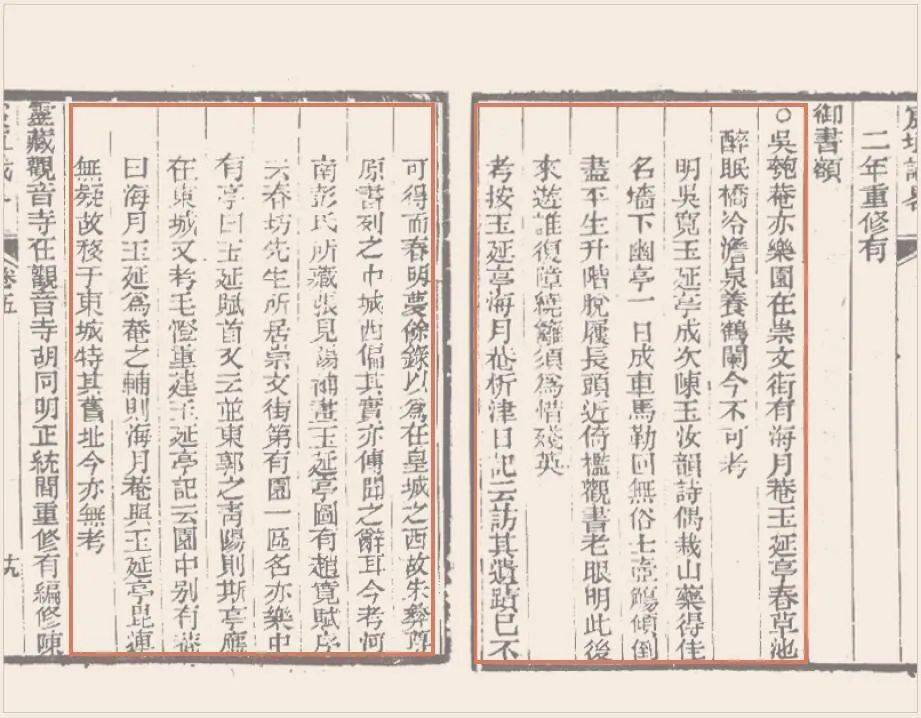 宸垣識畧
二年重修有
御書額
○吳匏菴亦樂園在崇文街有海月菴玉延亭春草池
醉眠橋冷澹泉養鶴闌今不可考
明吳寬玉延亭成次陳玉汝韻詩偶栽山藥得佳
名墻下幽亭一日成車馬勒回無俗士壺觴傾倒
盡平生升階脫屨長頭近倚檻觀書老眼明此後
來遊誰復障繞籬須爲惜殘英
考按玉延亭海月菴析津日記云訪其遺蹟已不
可得而春明夢餘錄以爲在皇城之西故朱彝尊
原書列之中城西偏其實亦傳聞之辭耳今考河
南彭氏所藏張見陽補畫玉延亭圖有趙寬賦序
云春坊先生所居崇文街第有園一區名亦樂中
有亭曰玉延賦首又云並東郭之靑陽則斯亭應
在東城又考毛澄重建玉延亭記云園中别有菴
曰海月玉延爲菴之輔則海月菴與玉延亭毘連
無疑故移于東城特其舊址今亦無考
靈藏觀音寺在觀音寺胡同明正統間重修有編修陳
卷五